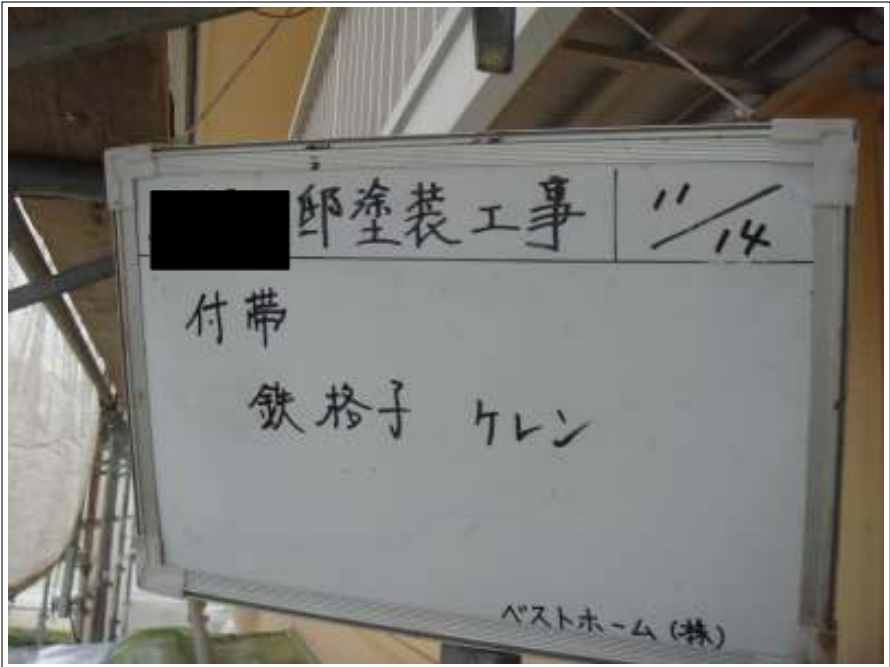 邸塗装工事 11/14
付帯
鉄格子 ケレン
ベストホーム(株)